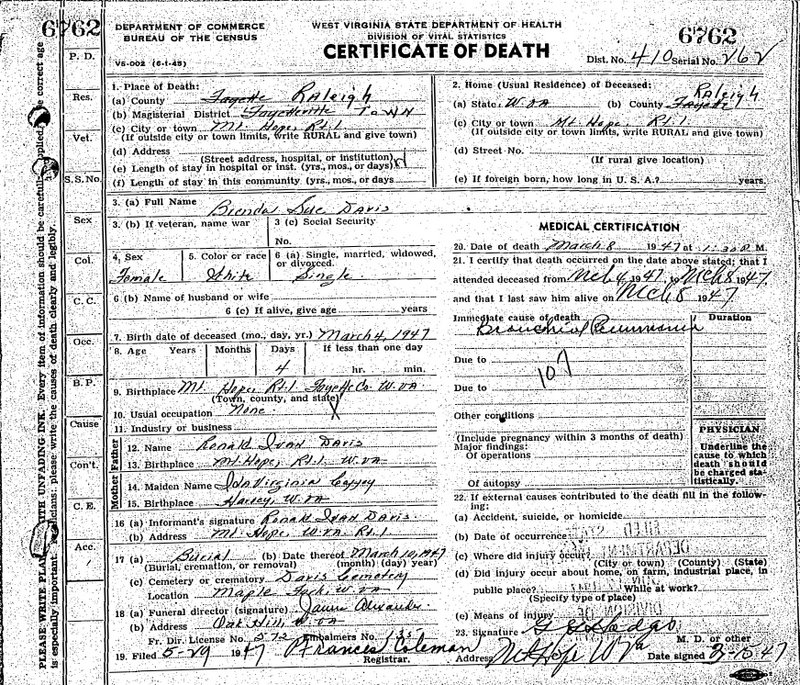 6762
DEPARTMENT OF COMMERCE
BUREAU OF THE CENSUS
VS-002 (6-1-45)
WEST VIRGINIA STATE DEPARTMENT OF HEALTH
DIVISION OF VITAL STATISTICS
CERTIFICATE OF DEATH
6762
Dist. No. 410 Serial No. 262
1. Place of Death:
(a) County Fayette Raleigh
(b) Magisterial District Fayetteville Town
(c) City or town Mt. Hope, Rt. 1
(If outside city or town limits, write RURAL and give town)
(d) Address
(Street address, hospital, or institution)
(e) Length of stay in hospital or inst. (yrs., mos., or days)
(f) Length of stay in this community (yrs., mos., or days
2. Home (Usual Residence) of Deceased:
Raleigh
(a) State W. VA (b) County Fayette
(c) City or town Mt. Hope Rt. 1
(If outside city or town limits, write RURAL and give town)
(d) Street No.
(If rural give location)
(e) If foreign born, how long in U. S. A.? years.
3. (a) Full Name Brenda Sue Davis
3. (b) If veteran, name war 3 (c) Social Security
No.
4. Sex 5. Color or race 6 (a) Single, married, widowed, or divorced.
Female White Single
6 (b) Name of husband or wife
6 (c) If alive, give age years
7. Birth date of deceased (mo., day, yr.) March 4, 1947
8. Age Years Months Days If less than one day
4 hr. min.
9. Birthplace Mt. Hope, Rt. 1 Fayette Co. W. VA.
(Town, county, and state)
10. Usual occupation None
11. Industry or business
Father
12. Name Ronald Ivan Davis
13. Birthplace Mt. Hope, Rt. 1. W. VA
Mother
14. Maiden Name Ida Virginia
15. Birthplace W. VA
16 (a) Informant's signature Ronald Ivan Davis
(b) Address Mt. Hope W. VA. Rt. 1
17 (a) Burial (b) Date thereof March 10, 1947
(Burial, cremation, or removal) (month) (day) (year)
(c) Cemetery or crematory Davis Cemetery
Location Maple Fork, W. VA
18 (a) Funeral director (signature) Alexander
(b) Address Oak Hill, W. VA
Fr. Dir. License No. 572 Embalmers No.
19. Filed 5-29 1947 Frances Coleman
Registrar.
MEDICAL CERTIFICATION
20. Date of death March 8 1947 at 1:30 M.
21. I certify that death occurred on the date above stated; that I
attended deceased from Mch 4 1947, to Mch 8 1947,
and that I last saw him alive on Mch 8 1947
Immediate cause of death Duration
Bronchial Pneumonia
Due to
107
Due to
Other conditions
(Include pregnancy within 3 months of death)
Major findings:
Of operations
Of autopsy
PHYSICIAN
Underline the cause to which death should be charged statistically.
22. If external causes contributed to the death fill in the following:
(a) Accident, suicide, or homicide
(b) Date of occurrence
(c) Where did injury occur?
(City or town) (County) (State)
(d) Did injury occur about home, on farm, industrial place, in
public place? While at work?
(Specify type of place)
(e) Means of injury
23. Signature
M. D. or other
Address Mt Hope W Va Date signed 3-15-47
P. D.
Res.
Vet.
S. S. No.
Sex
Col.
C. C.
Occ.
B. P.
Cause
Con't.
C. E.
Acc.